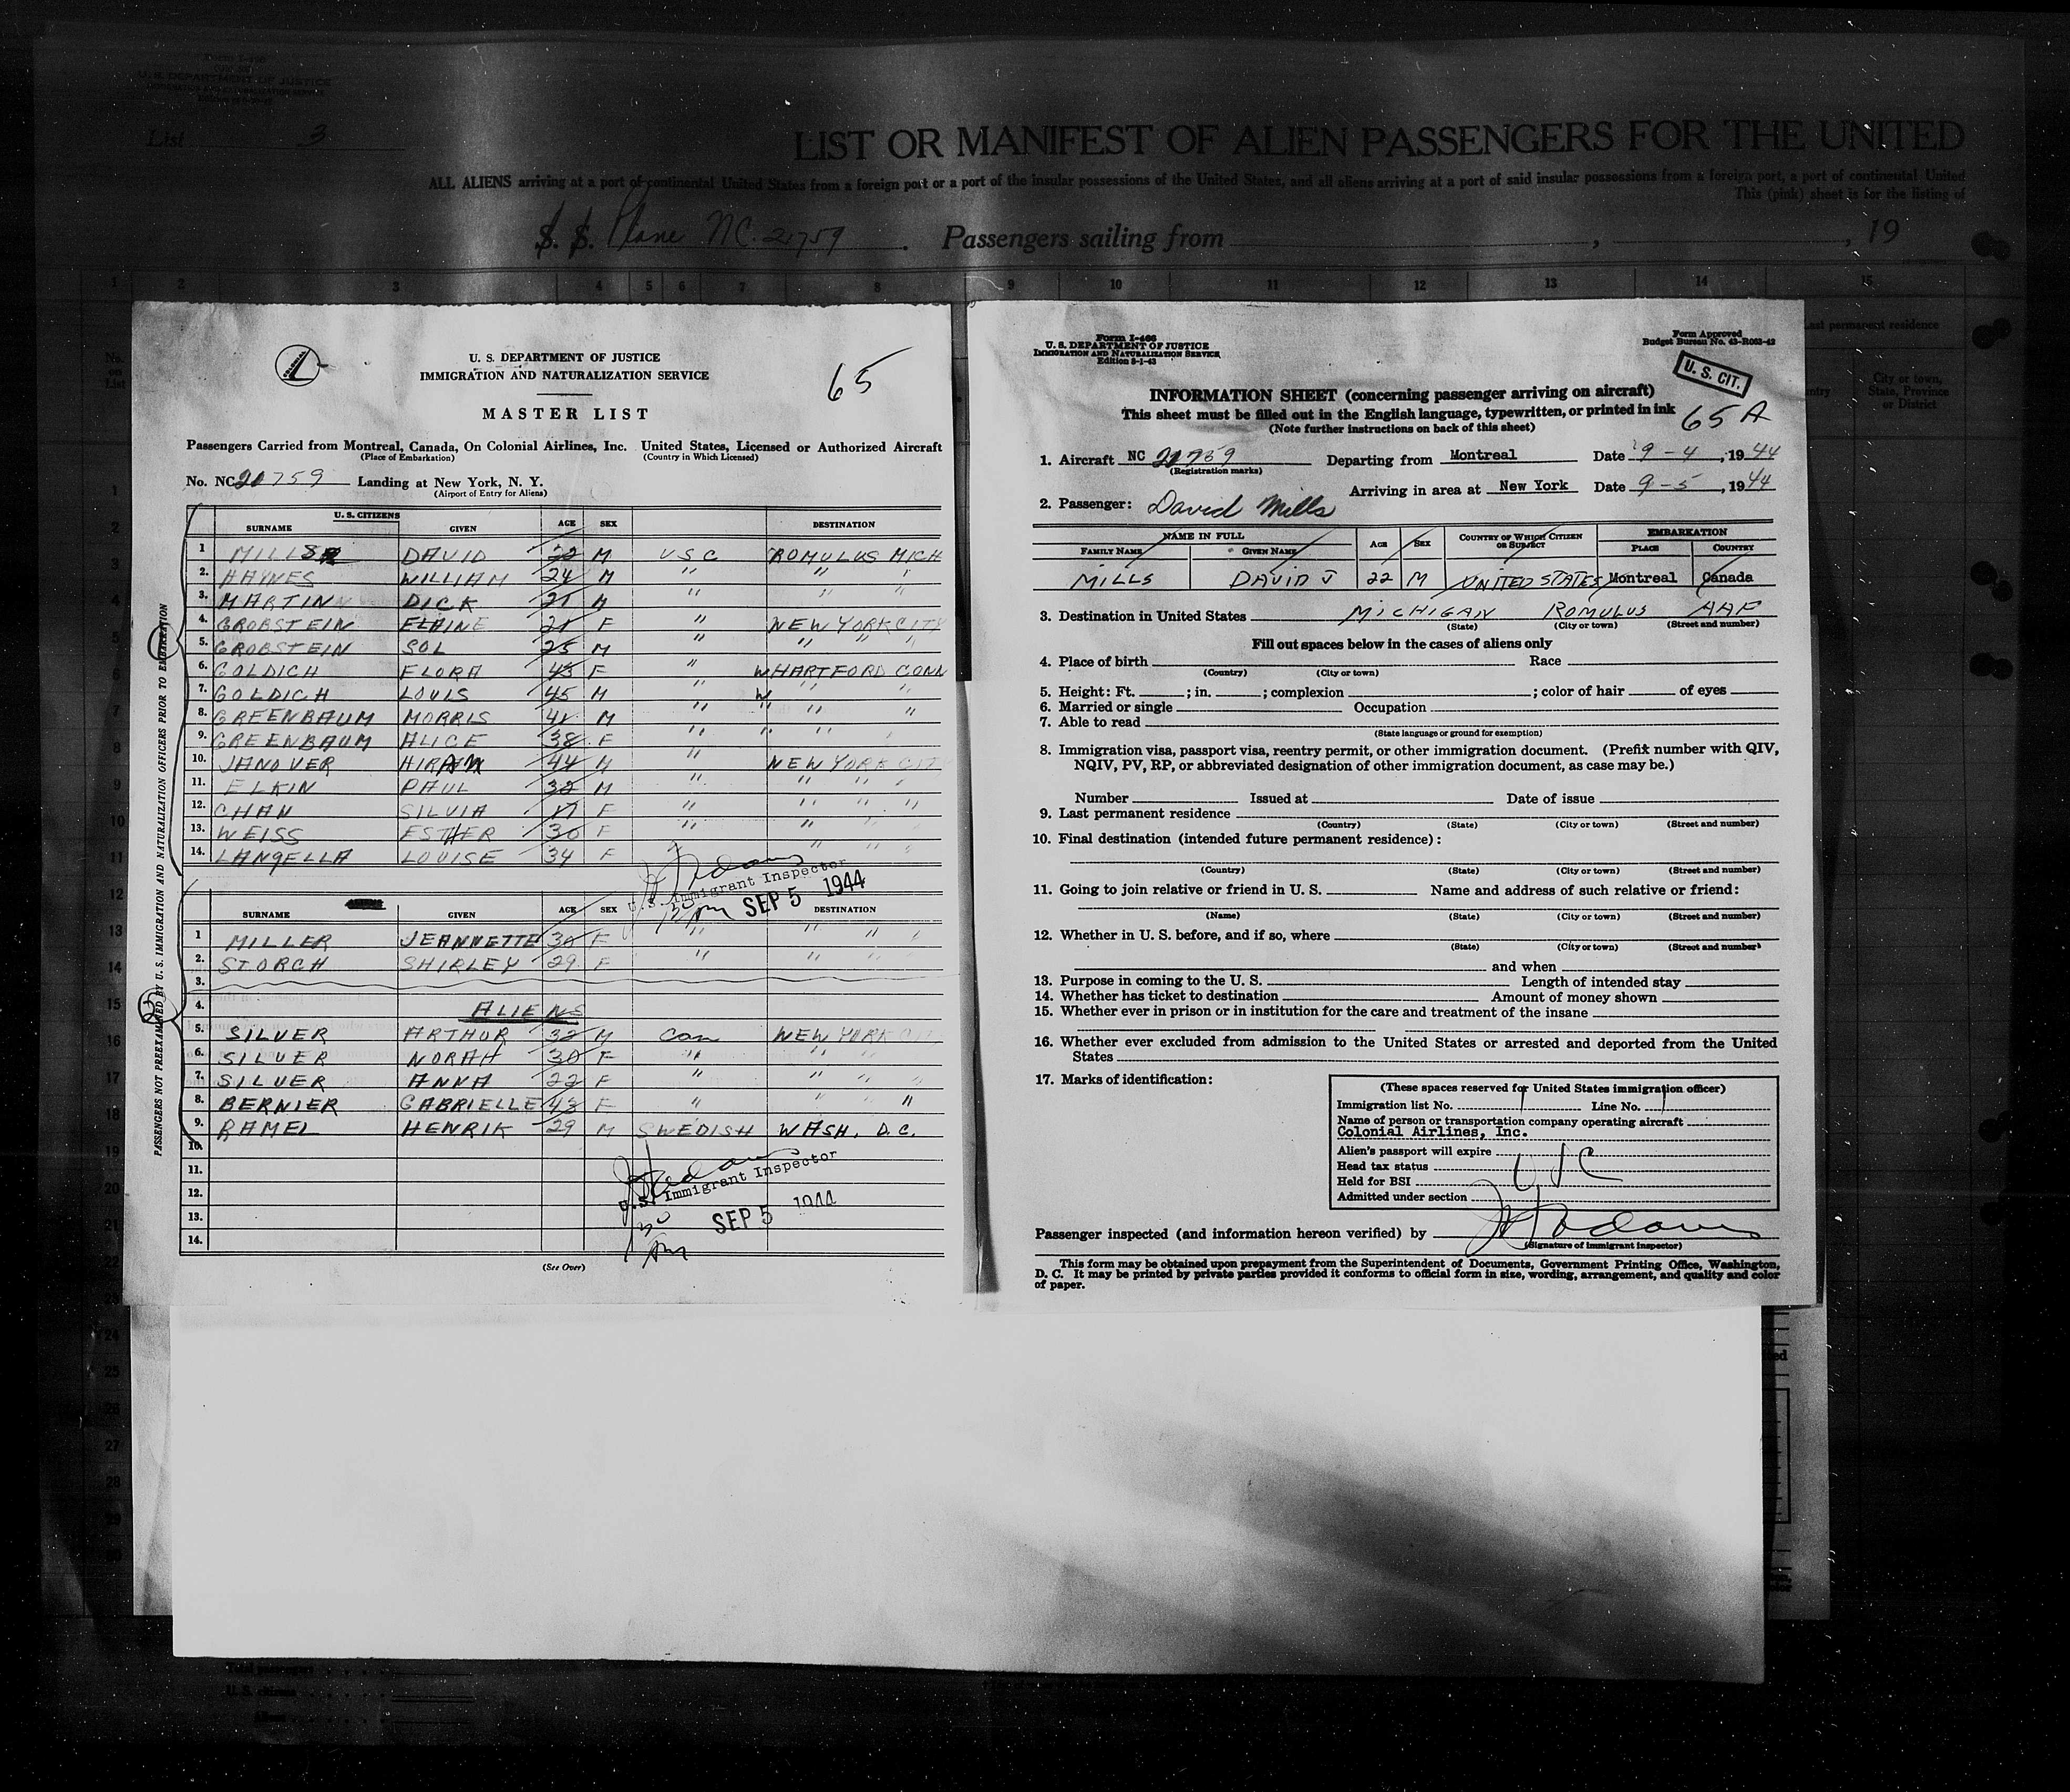 Form I-466
U. S. DEPARTMENT OF JUSTICE
IMMIGRATION AND NATURALIZATION SERVICE
List 3
LIST OR MANIFEST OF ALIEN PASSENGERS FOR THE UNITED
ALL ALIENS arriving at a port of continental United States from a foreign port or a port of the insular possessions of the United States, and all aliens arriving at a port of said insular possessions from a foreign port, a port of continental United
This (pink) sheet is for the listing of
S. S. Plane NC. 21759 . Passengers sailing from , , 19
1 2 3 4 5 6 7 8 9 10 11 12 13 14 15
U. S. DEPARTMENT OF JUSTICE
IMMIGRATION AND NATURALIZATION SERVICE
65
MASTER LIST
Passengers Carried from Montreal, Canada, On Colonial Airlines, Inc. United States, Licensed or Authorized Aircraft
(Place of Embarkation) (Country in Which Licensed)
No. NC 21759 Landing at New York, N. Y.
(Airport of Entry for Aliens)
PASSENGERS NOT PREEXAMINED BY U. S. IMMIGRATION AND NATURALIZATION OFFICERS PRIOR TO EMBARKATION
U. S. CITIZENS
SURNAME GIVEN AGE SEX DESTINATION
1 MILLS DAVID 22 M USC ROMULUS MICH
2. HAYNES WILLIAM 24 M " " "
3. MARTIN DICK 21 M " " "
4. GROBSTEIN ELAINE 21 F " NEW YORK CITY
5. GROBSTEIN SOL 25 M " " " "
6. GOLDICH FLORA 43 F " W HARTFORD CONN
7. GOLDICH LOUIS 45 M " W " "
8. GREENBAUM MORRIS 41 M " " " "
9. GREENBAUM ALICE 38 F " " " "
10. JANOVER HIRAM 44 M " NEW YORK CITY
11. ELKIN PAUL 32 M " " " "
12. CHAN SILVIA 17 F " " " "
13. WEISS ESTHER 30 F " " "
14. LANGELLA LOUISE 34 F " " " "
U.S. Immigrant Inspector
SEP 5 1944
SURNAME GIVEN AGE SEX DESTINATION
1 MILLER JEANNETTE 30 F " " " "
2. STORCH SHIRLEY 29 F " " " "
3.
4. ALIENS
5. SILVER ARTHUR 32 M Can NEW YORK CITY
6. SILVER NORAH 30 F " " "
7. SILVER ANNA 22 F " " " "
8. BERNIER GABRIELLE 43 F " " " "
9. RAMEL HENRIK 29 M SWEDISH WASH. D.C.
10.
11.
12.
13.
14.
U.S. Immigrant Inspector
SEP 5 1944
(See Over)
Form I-466
U. S. DEPARTMENT OF JUSTICE
IMMIGRATION AND NATURALIZATION SERVICE
Edition 8-1-43
Form Approved
Budget Bureau No. 43-R063-42
U. S. CIT.
INFORMATION SHEET (concerning passenger arriving on aircraft)
This sheet must be filled out in the English language, typewritten, or printed in ink
65 A
(Note further instructions on back of this sheet)
1. Aircraft NC 21759 Departing from Montreal Date 9-4, 1944
(Registration marks)
Arriving in area at New York Date 9-5, 1944
2. Passenger: David Mills
NAME IN FULL AGE SEX COUNTRY OF WHICH CITIZEN OR SUBJECT EMBARKATION
FAMILY NAME GIVEN NAME PLACE COUNTRY
MILLS DAVID J 22 M UNITED STATES Montreal Canada
3. Destination in United States MICHIGAN ROMULUS AAF
(State) (City or town) (Street and number)
Fill out spaces below in the cases of aliens only
4. Place of birth Race
(Country) (City or town)
5. Height: Ft. ; in. ; complexion ; color of hair of eyes
6. Married or single Occupation
7. Able to read
(State language or ground for exemption)
8. Immigration visa, passport visa, reentry permit, or other immigration document. (Prefix number with QIV,
NQIV, PV, RP, or abbreviated designation of other immigration document, as case may be.)
Number Issued at Date of issue
9. Last permanent residence
(Country) (State) (City or town) (Street and number)
10. Final destination (intended future permanent residence):
(Country) (State) (City or town) (Street and number)
11. Going to join relative or friend in U. S. Name and address of such relative or friend:
(Name) (State) (City or town) (Street and number)
12. Whether in U. S. before, and if so, where
(State) (City or town) (Street and number)
and when
13. Purpose in coming to the U. S. Length of intended stay
14. Whether has ticket to destination Amount of money shown
15. Whether ever in prison or in institution for the care and treatment of the insane
16. Whether ever excluded from admission to the United States or arrested and deported from the United
States
17. Marks of identification:
(These spaces reserved for United States immigration officer)
Immigration list No. Line No.
Name of person or transportation company operating aircraft
Colonial Airlines, Inc.
Alien's passport will expire
Head tax status USC
Held for BSI
Admitted under section
Passenger inspected (and information hereon verified) by
(Signature of Immigrant Inspector)
This form may be obtained upon prepayment from the Superintendent of Documents, Government Printing Office, Washington,
D. C. It may be printed by private parties provided it conforms to official form in size, wording, arrangement, and quality and color
of paper.